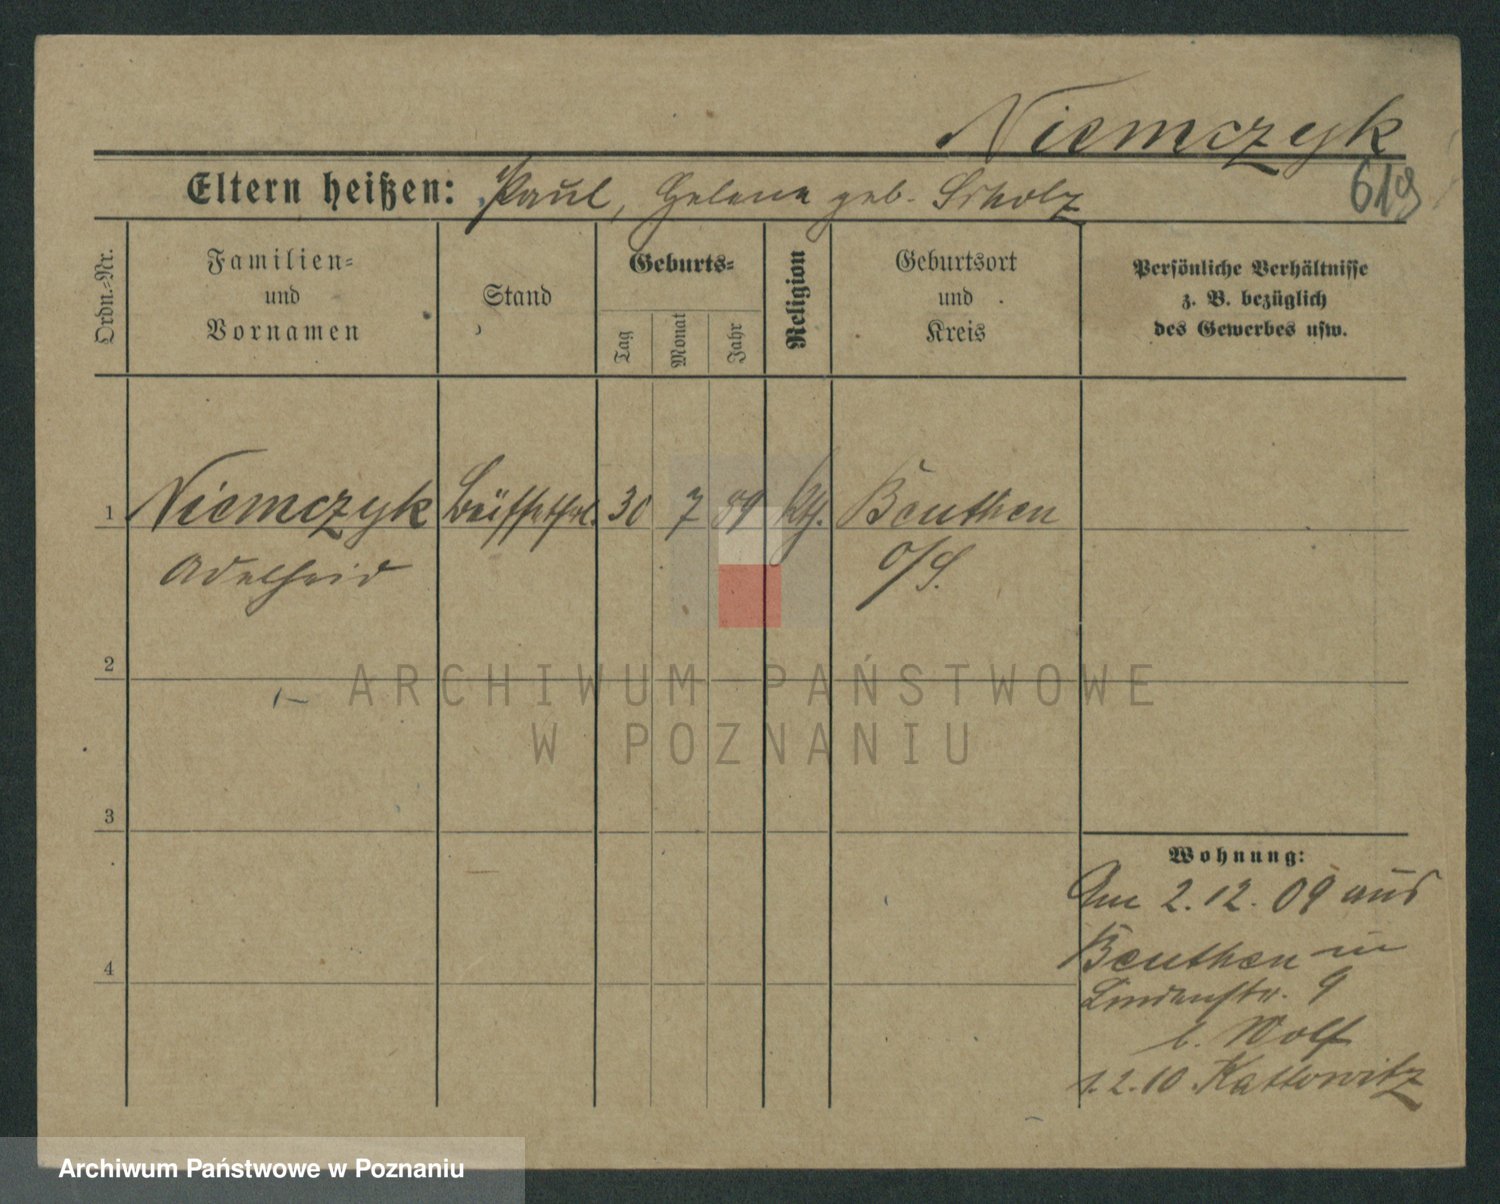 Niemczyk
Eltern heißen: Paul, Helene geb. Scholz
619
Ordn.=Nr.
Familien=
und
Vornamen
Stand
Geburts=
Tag
Monat
Jahr
Religion
Geburtsort
und
Kreis
Persönliche Verhältnisse
z. B. bezüglich
des Gewerbes usw.
1 Niemczyk Büffetfrl. 30 7 89 kth. Beuthen
Adelheid O/S.
2
3
4
Wohnung:
Am 2.12.09 aus
Beuthen in
Lindenstr. 9
b. Wolf
1.2.10 Kattowitz
ARCHIWUM PAŃSTWOWE
W POZNANIU
Archiwum Państwowe w Poznaniu